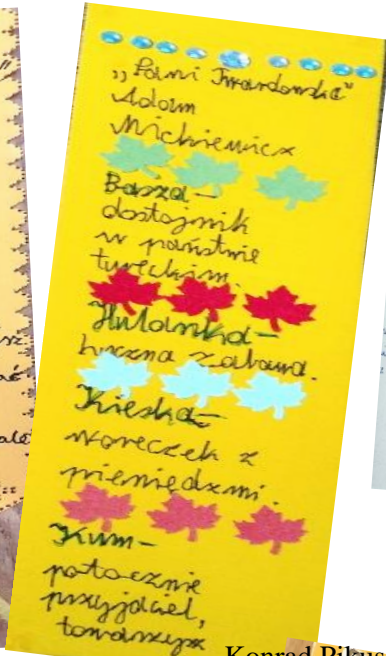 „Pani Twardowska"
Adam
Mickiewicz
Basza –
dostojnik
w państwie
tureckim.
Hulanka –
huczna zabawa.
Kieska –
woreczek z
pieniędzmi.
Kum –
potocznie
przyjaciel,
towarzysz
Konrad Pikus